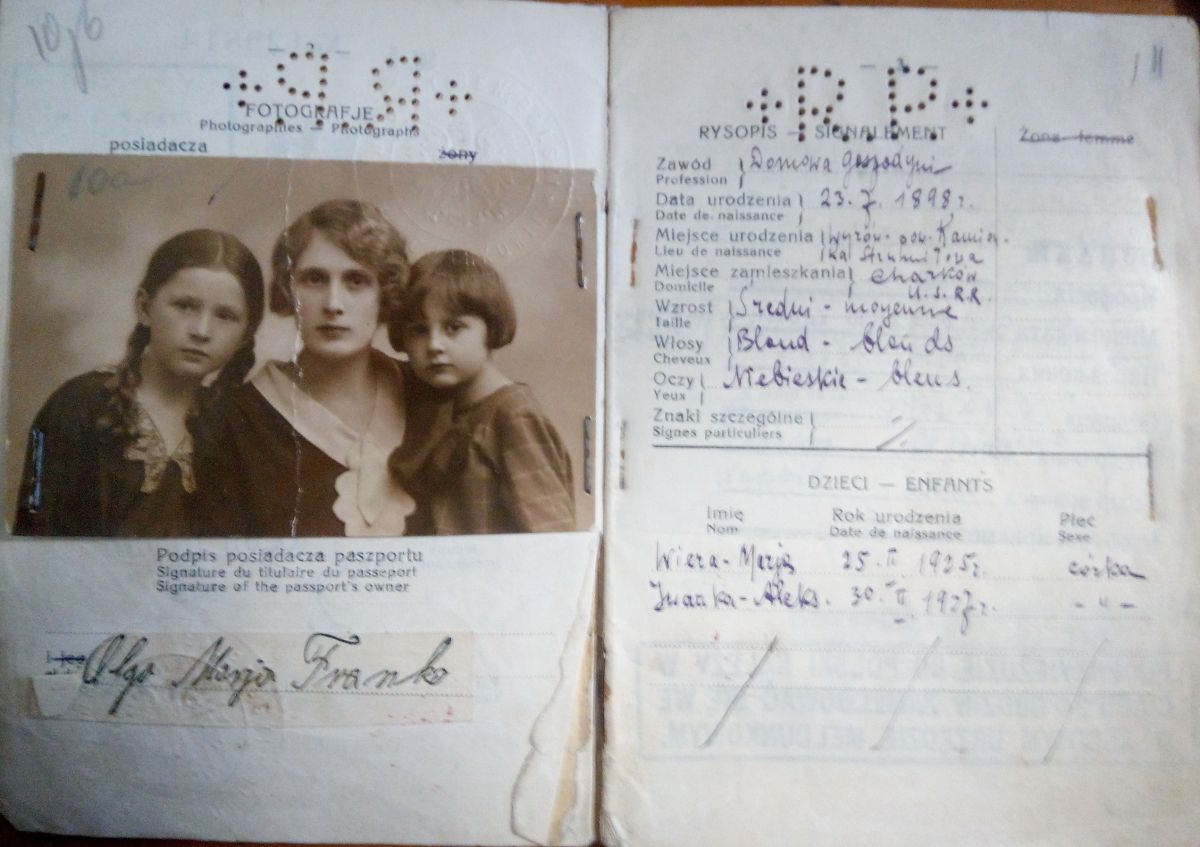 10 b
— 2 —
FOTOGRAFJE
Photographies — Photographs
posiadacza
żony
10a
Podpis posiadacza paszportu
Signature du titulaire du passeport
Signature of the passport's owner
Olga Marja Franko
11
— 3 —
+R.P+
RYSOPIS — SIGNALEMENT
Żona — femme
Zawód
Profession
Domowa Gospodyni
Data urodzenia
Date de naissance
23. 7. 1898 r.
Miejsce urodzenia
Lieu de naissance
Wyrów. pow. Kamion-
ka Strumiłowa
Miejsce zamieszkania
Domicile
Charków
U.S.R.R.
Wzrost
Taille
Średni - moyenne
Włosy
Cheveux
Blond - blonds
Oczy
Yeux
Niebieskie - bleus.
Znaki szczególne
Signes particuliers
DZIECI — ENFANTS
Imię
Nom
Rok urodzenia
Date de naissance
Płeć
Sexe
Wiera-Marja 25. II. 1925 r. córka
Iwanka-Aleks. 30. 1927 r. - " -